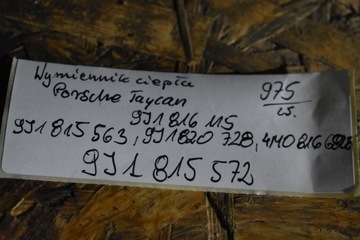 Wymiennik ciepła
Porsche Taycan
975
9J1 816 115
9J1 815 563, 9J1 820 728, 4M0 816
9J1 815 572